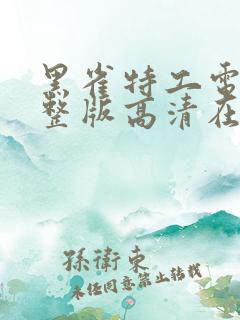 黑雀特工电
整版高清在
孫衛東
未经同意禁止转载